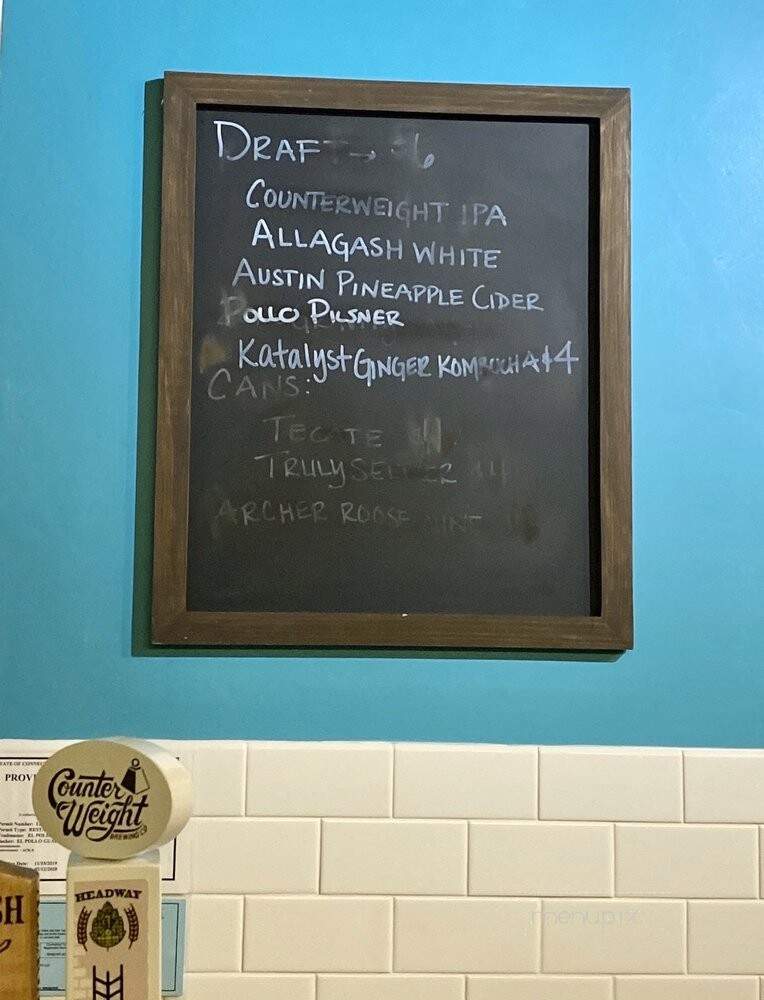 DRAFT → $6
COUNTERWEIGHT IPA
ALLAGASH WHITE
AUSTIN PINEAPPLE CIDER
POLLO PILSNER
Katalyst GINGER KOMBUCHA $4
CANS:
TECATE $4
TRULY SELTZER $4
ARCHER ROOSE WINE
Counter
Weight
BREWING CO
HEADWAY
SH
STATE OF CONNEC
PROVI
menupix